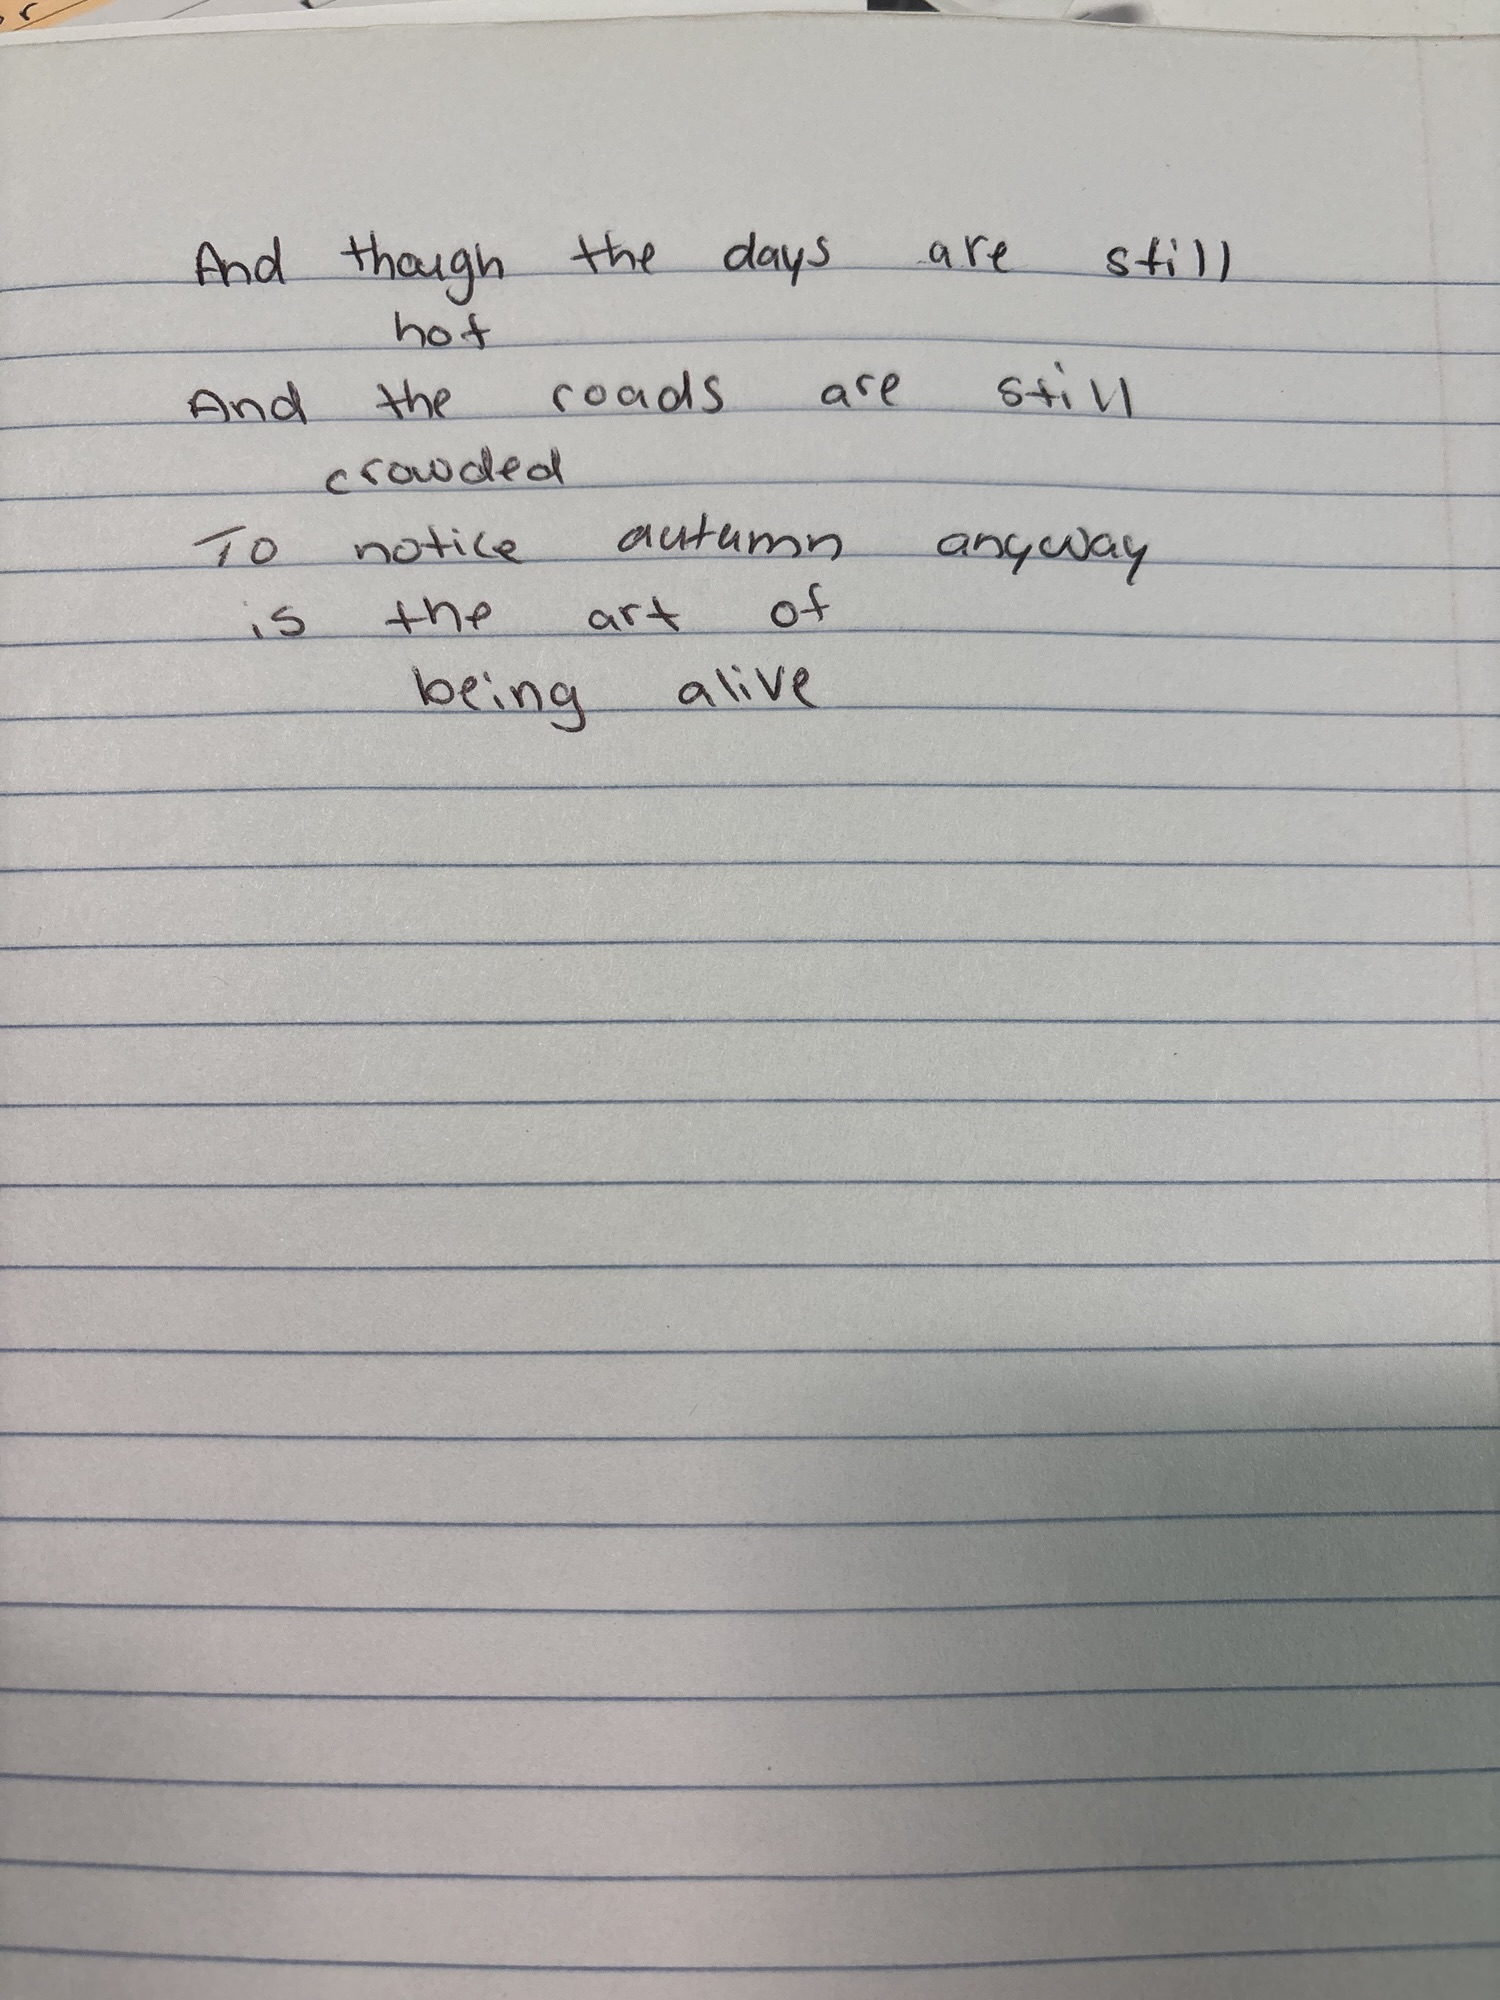 And though the days are still
hot
And the roads are still
crowded
To notice autumn anyway
is the art of
being alive